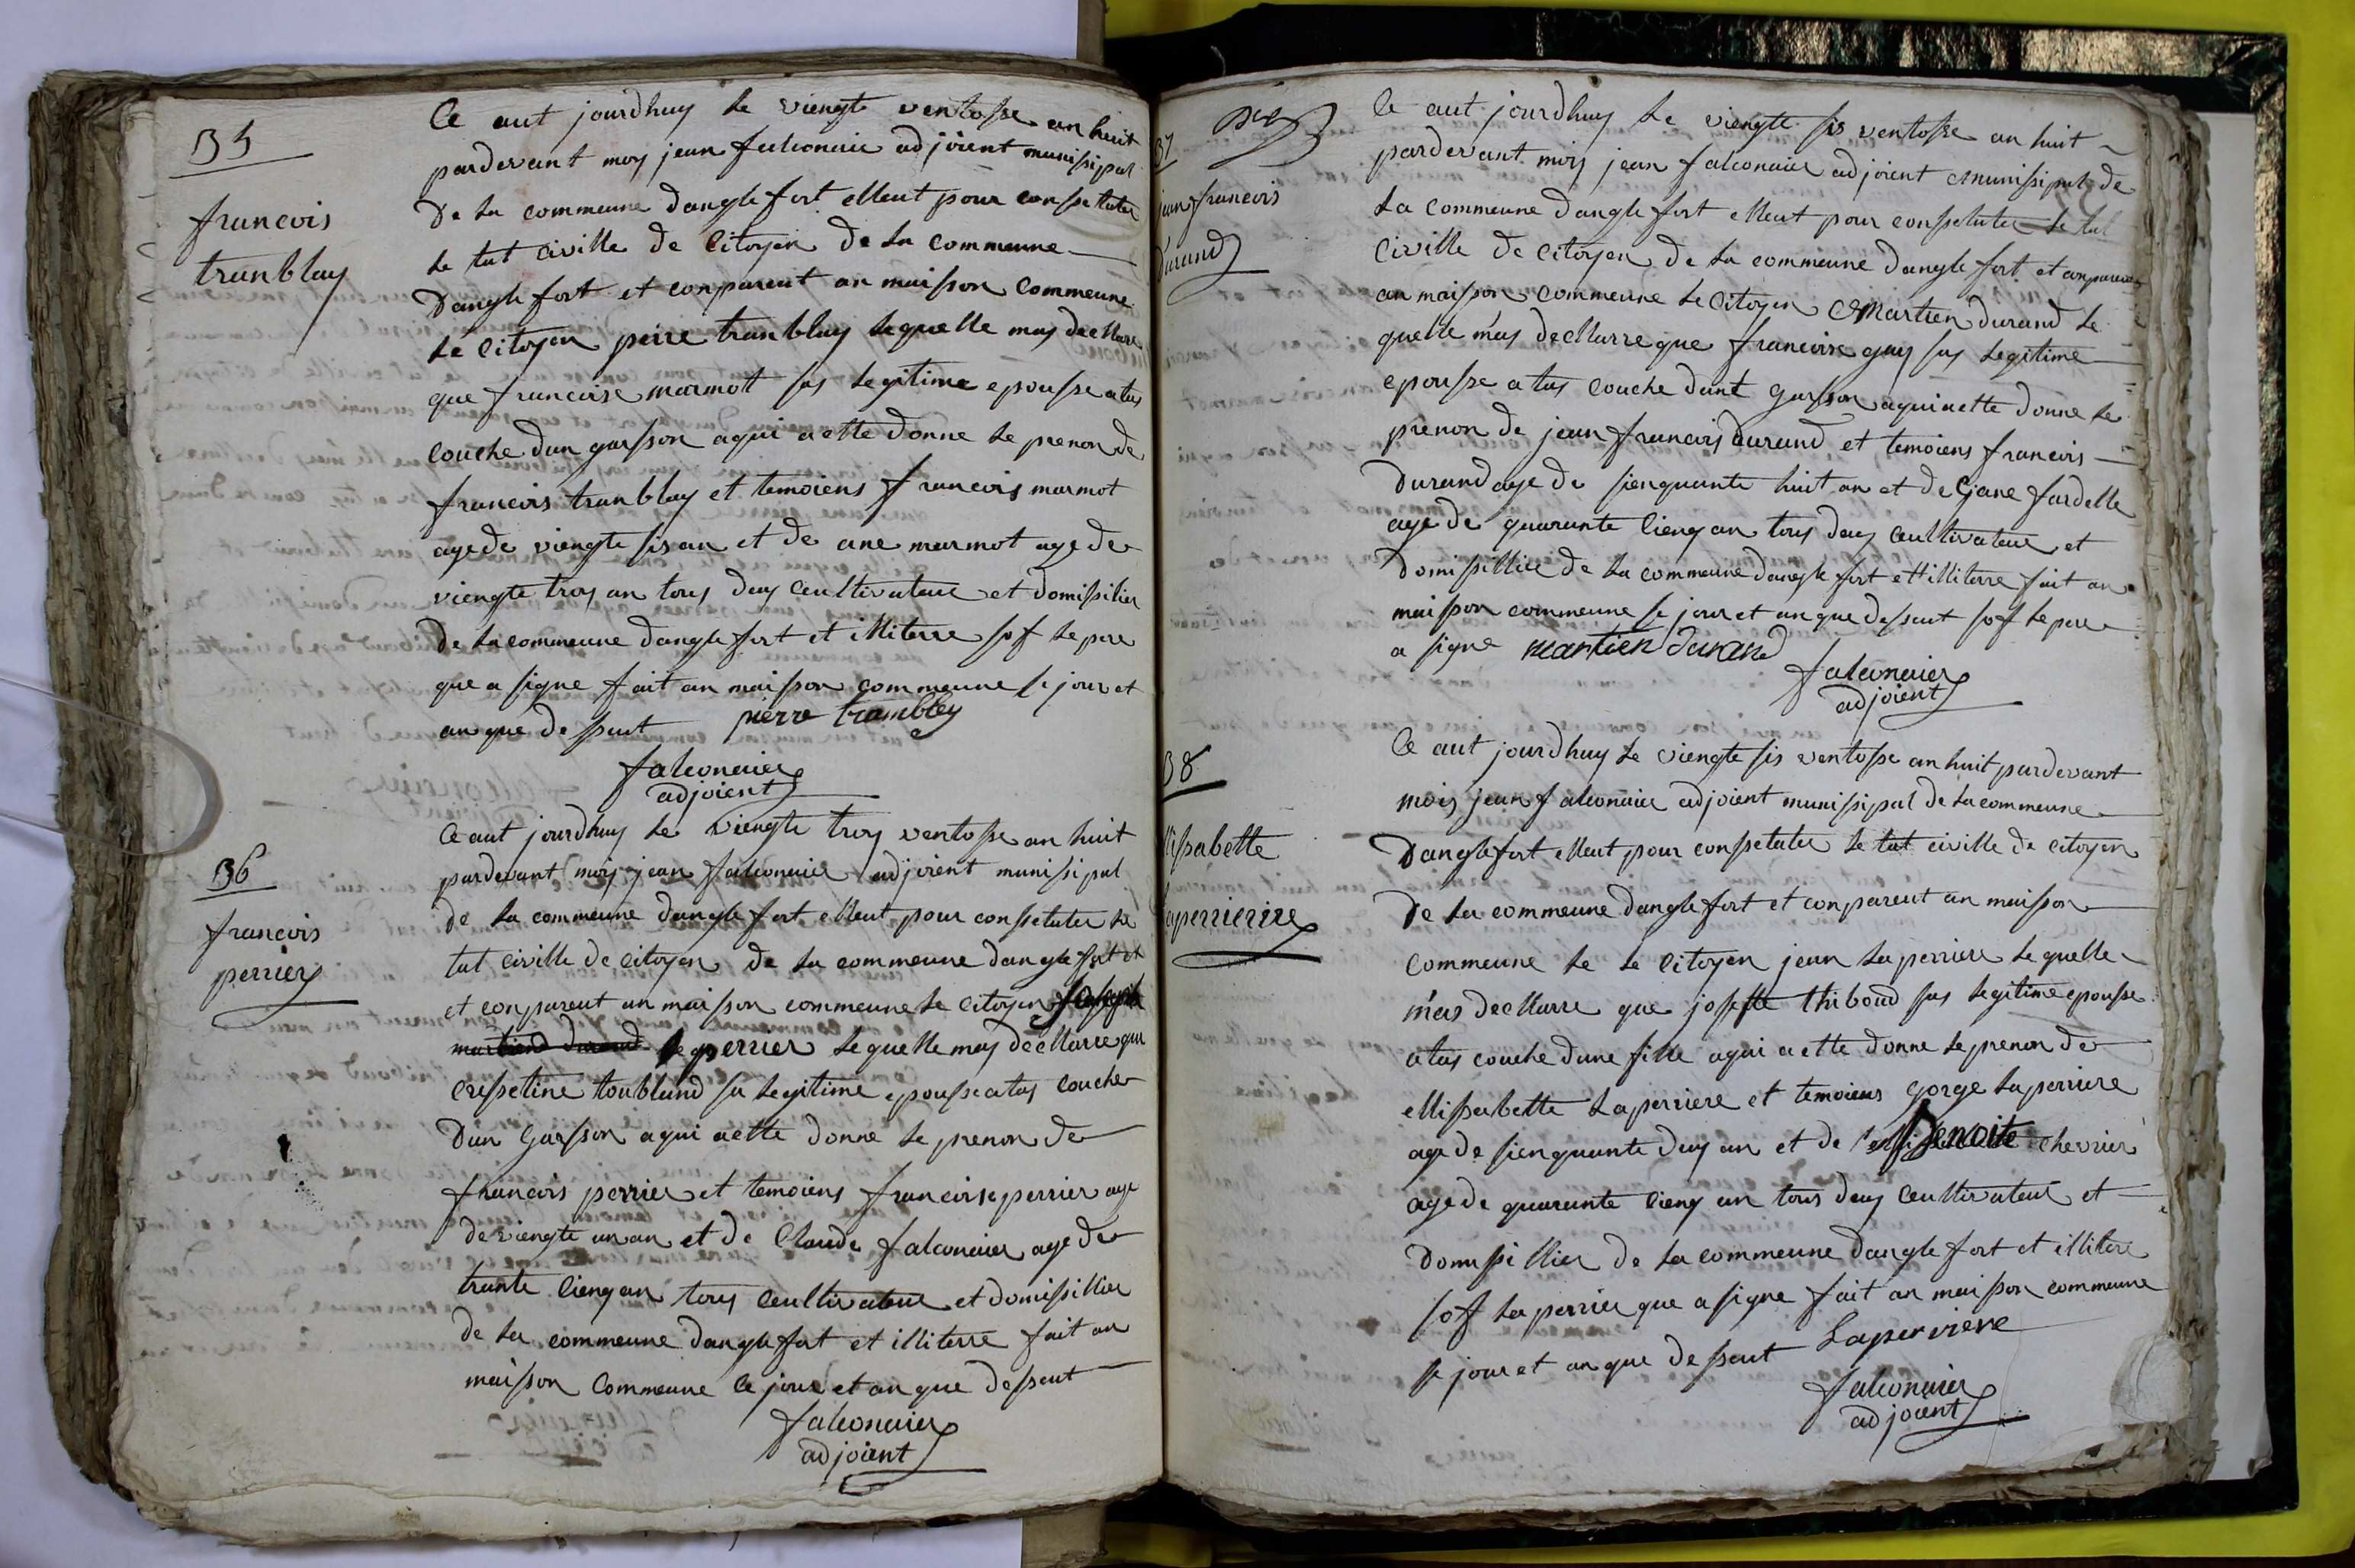 35
francois
tranblay
Ce aut jourdhuy le viengte ventosse an huit
pardevant moy jean falconnier adjoient munissipal
de la commeune danglefort elleut pour conssetater
le tat civille de Citoyen de la commeune
danglefort et conpareut an maisson commeune
le Citoyen peire tranblay lequelle mas decllare
que francoise marmott sas legitime epousse a tas
couche dun garsson aqui a ette donne le prenon de
francois tranblay et temoiens francois marmot
age de viengte sis an et de ane marmot age de
viengte troy an tous deuy ceultivateur et domissilier
de la commeune danglefort et illiterre sof le pere
que a signe fait an maisson commeune se jour et
an que desseut pierre trambley
falconnier
adjoient
36
francois
perrier
Ce aut jourdhuy le viengte troy ventosse an huit
pardevant moy jean falconnier adjoient munissipal
de la commeune danglefort elleut pour conssetater le
tat civille de citoyen de la commeune danglefort et
et conpareut an maisson commeune le citoyen joseph
perrier lequelle mas decllarre que
cresstine toubland sa legitime epousse a tas couche
dun garsson aqui a ette donne le prenon de
francois perrier et temoiens francoise perrier age
de viengte un an et de Claude falconnier age de
trante cienq an tous ceultivateur et domissillier
de la commeune danglefort et illiterre fait an
maisson Commeune Ce jour et an que desseut
falconnier
adjoient
37
jean francois
durand
Ce aut jourdhuy le viengte sis ventosse an huit
pardevant mois jean falconnier adjoient munissipal de
la commeune danglefort elleut pour conssetater le tat
civille de citoyen de la commeune danglefort et conpareut
an maisson commeune le Citoyen Martien durand le
quelle mas decllarre que francoise gay sas legitime
epousse a tas couche dunt garsson aqui a ette donne le
prenon de jean francois durand et temoiens francois
durand age de sienquante huit an et de Cjane fardelle
age de quarante cienq an tous deuy ceultivateur et
domissillier de la commeune danglefort et illiterre fait an
maisson commeune se jour et an que desseut sof le pere
a signe martien durand
falconnier
adjoient
38
llissabette
laperrierire
Ce aut jourdhuy le viengte sis ventosse an huit pardevant
mois jean falconnier adjoient munissipal de la commeune
danglefort elleut pour conssetater le tat civille de citoyen
de la commeune danglefort et conpareut an maisson
commeune le le Citoyen jean laperriere lequelle
mas decllarre que josette thiboud sas legitime epousse
a tas couche dune fille aqui a ette donne le prenon de
ellissabette laperriere et temoiens gorge laperriere
age de sienquante deuy an et de benoite chevrier
age de quarante cienq an tous deuy ceultivateur et
domissillier de la commeune danglefort et illitere
sof laperrier que a signe fait an maisson commeune
se jour et an que desseut Laperriere
falconnier
adjoient